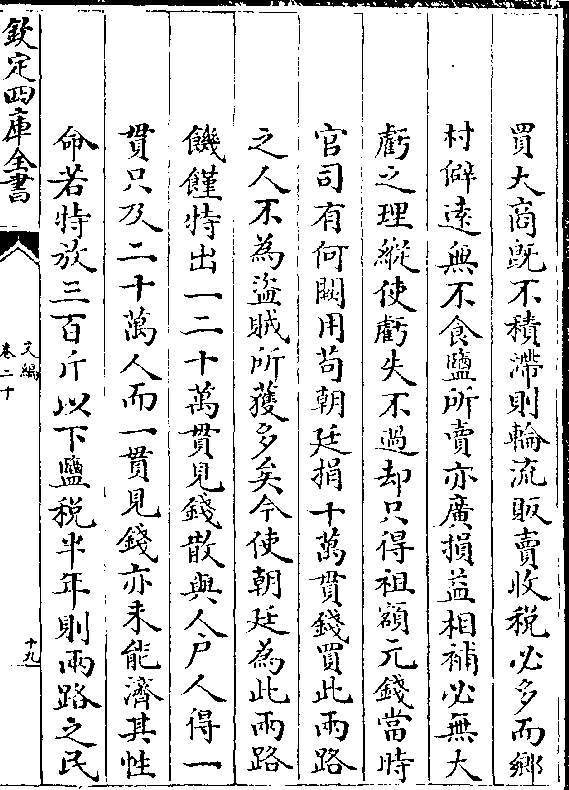 買大商既不積滯則輪流販賣收税必多而鄉
村僻逺無不食鹽所賣亦廣損益相補必無大
虧之理縱使虧失不過却只得祖額元錢當時
官司有何闕用苟朝廷捐十萬貫錢買此兩路
之人不為盜賊所獲多矣今使朝廷為此兩路
饑饉特出一二十萬貫見錢散與人户人得一
貫只及二十萬人而一貫見錢亦未能濟其性
命若特放三百斤以下鹽税半年則兩路之民
欽定四庫全書
文編
卷二十
十九